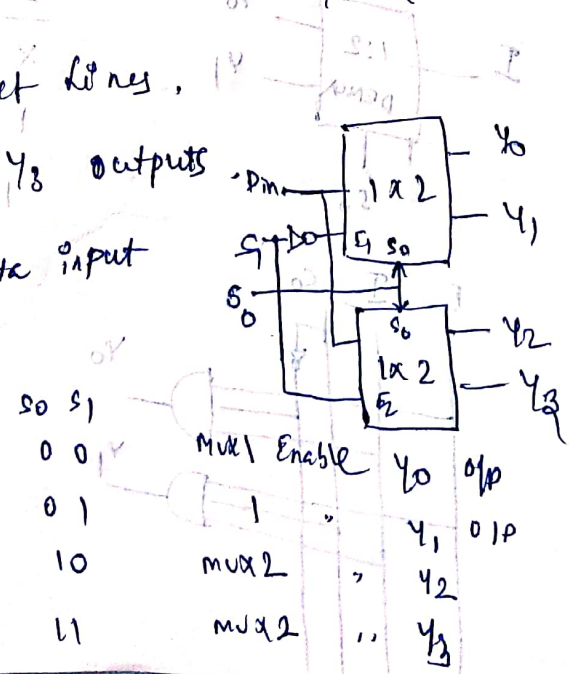 et lines,
Y3 outputs
ta input
Din
1x2
Y0
Y1
S1
E1 S0
S0
S0
1x2
E2
Y2
Y3
S0 S1
0 0 Mux1 Enable Y0 o/p
0 1 1 " Y1 o/p
10 mux2 " Y2
11 mux2 " Y3